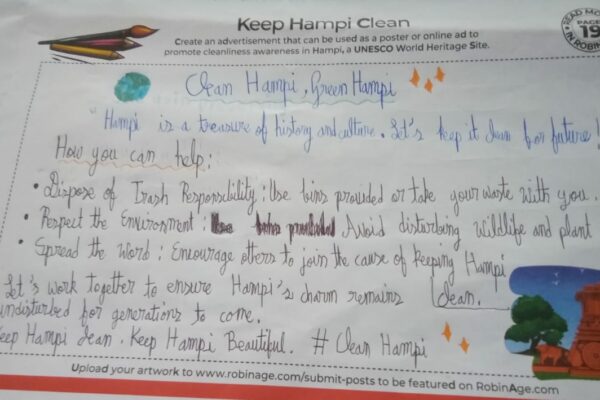 Keep Hampi Clean
Create an advertisement that can be used as a poster or online ad to
promote cleanliness awareness in Hampi, a UNESCO World Heritage Site.
READ MO
PAGE
19
IN ROBIN
Clean Hampi, Green Hampi
"Hampi is a treasure of history and culture. Let's keep it clean for future!
How you can help:
• Dispose of Trash Responsibility: Use bins provided or take your waste with you.
• Respect the Environment: Avoid disturbing wildlife and plant
• Spread the Word: Encourage others to join the cause of keeping Hampi
clean.
Let's work together to ensure Hampi's charm remains
undisturbed for generations to come.
Keep Hampi clean. Keep Hampi Beautiful. # Clean Hampi
Upload your artwork to www.robinage.com/submit-posts to be featured on RobinAge.com